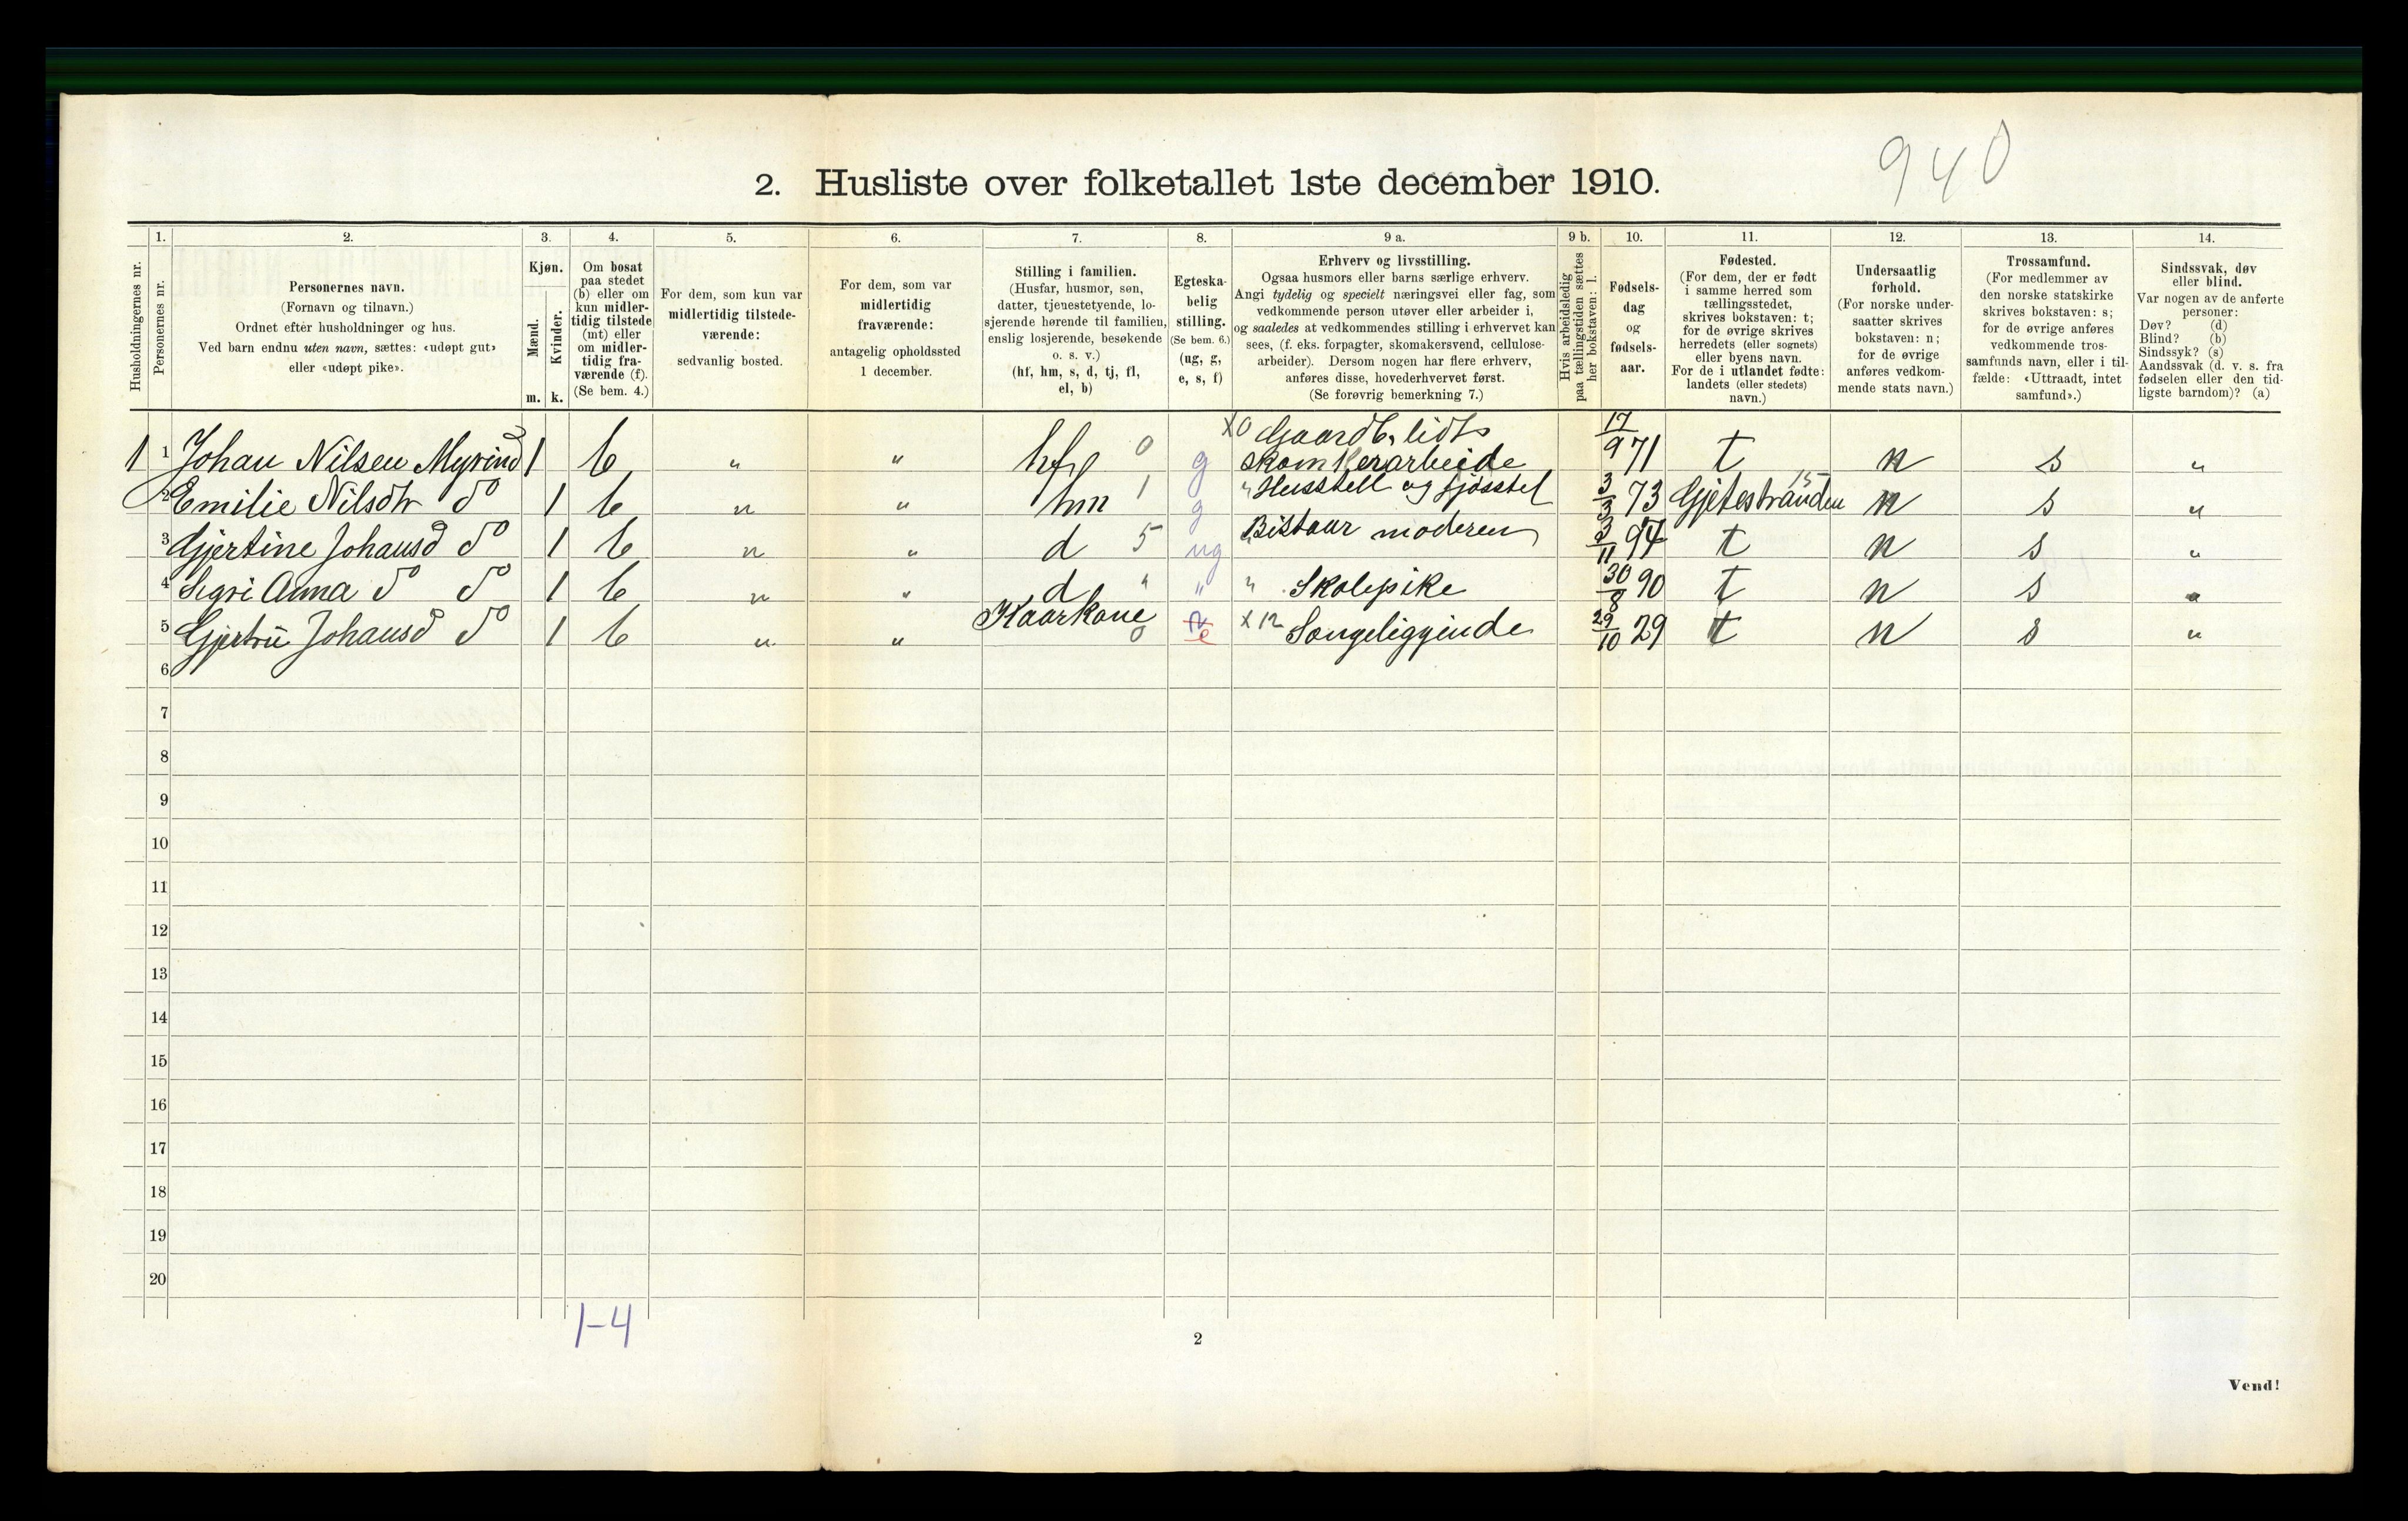 940
2. Husliste over folketallet 1ste december 1910.
Husholdningernes nr.
1.
Personernes nr.
2.
Personernes navn.
(Fornavn og tilnavn.)
Ordnet efter husholdninger og hus.
Ved barn endnu uten navn, sættes: «udøpt gut»
eller «udøpt pike».
3.
Kjøn.
Mænd.
Kvinder.
m. k.
4.
Om bosat
paa stedet
(b) eller om
kun midler-
tidig tilstede
(mt) eller
om midler-
tidig fra-
værende (f).
(Se bem. 4.)
5.
For dem, som kun var
midlertidig tilstede-
værende:
sedvanlig bosted.
6.
For dem, som var
midlertidig
fraværende:
antagelig opholdssted
1 december.
7.
Stilling i familien.
(Husfar, husmor, søn,
datter, tjenestetyende, lo-
sjerende hørende til familien,
enslig losjerende, besøkende
o. s. v.)
(hf, hm, s, d, tj, fl,
el, b)
8.
Egteska-
belig
stilling.
(Se bem. 6.)
(ug, g,
e, s, f)
9 a.
Erhverv og livsstilling.
Ogsaa husmors eller barns særlige erhverv.
Angi tydelig og specielt næringsvei eller fag, som
vedkommende person utøver eller arbeider i,
og saaledes at vedkommendes stilling i erhvervet kan
sees, (f. eks. forpagter, skomakersvend, cellulose-
arbeider). Dersom nogen har flere erhverv,
anføres disse, hovederhvervet først.
(Se forøvrig bemerkning 7.)
9 b.
Hvis arbeidsledig
paa tællingstiden sættes
her bokstaven: l.
10.
Fødsels-
dag
og
fødsels-
aar.
11.
Fødested.
(For dem, der er født
i samme herred som
tællingsstedet,
skrives bokstaven: t;
for de øvrige skrives
herredets (eller sognets)
eller byens navn.
For de i utlandet fødte:
landets (eller stedets)
navn.)
12.
Undersaatlig
forhold.
(For norske under-
saatter skrives
bokstaven: n;
for de øvrige
anføres vedkom-
mende stats navn.)
13.
Trossamfund.
(For medlemmer av
den norske statskirke
skrives bokstaven: s;
for de øvrige anføres
vedkommende tros-
samfunds navn, eller i til-
fælde: «Uttraadt, intet
samfund».)
14.
Sindssvak, døv
eller blind.
Var nogen av de anførte
personer:
Døv? (d)
Blind? (b)
Sindssyk? (s)
Aandssvak (d. v. s. fra
fødselen eller den tid-
ligste barndom)? (a)
1 1 Johan Nilsen Myrind 1 b " " hf 0 g X0 Gaardb, lidt skomkerarbeide 17/9 71 t n s "
2 Emilie Nilsdtr do 1 b " " hm 1 g " Husstell og fjösstel 3/3 73 15 Gjetestranden n s "
3 Gjertine Johansd do 1 b " " d 5 ug " Bistaar moderen 2/11 94 t n s "
4 Sigri Anna do do 1 b " " d " " " Skolepike 30/8 90 t n s "
5 Gjertrü Johansd do 1 b " " Kaarkone 0 e X 12 Sengeliggjende 29/10 29 t n s "
6
7
8
9
10
11
12
13
14
15
16
17
18
19
20
1-4
2
Vend!